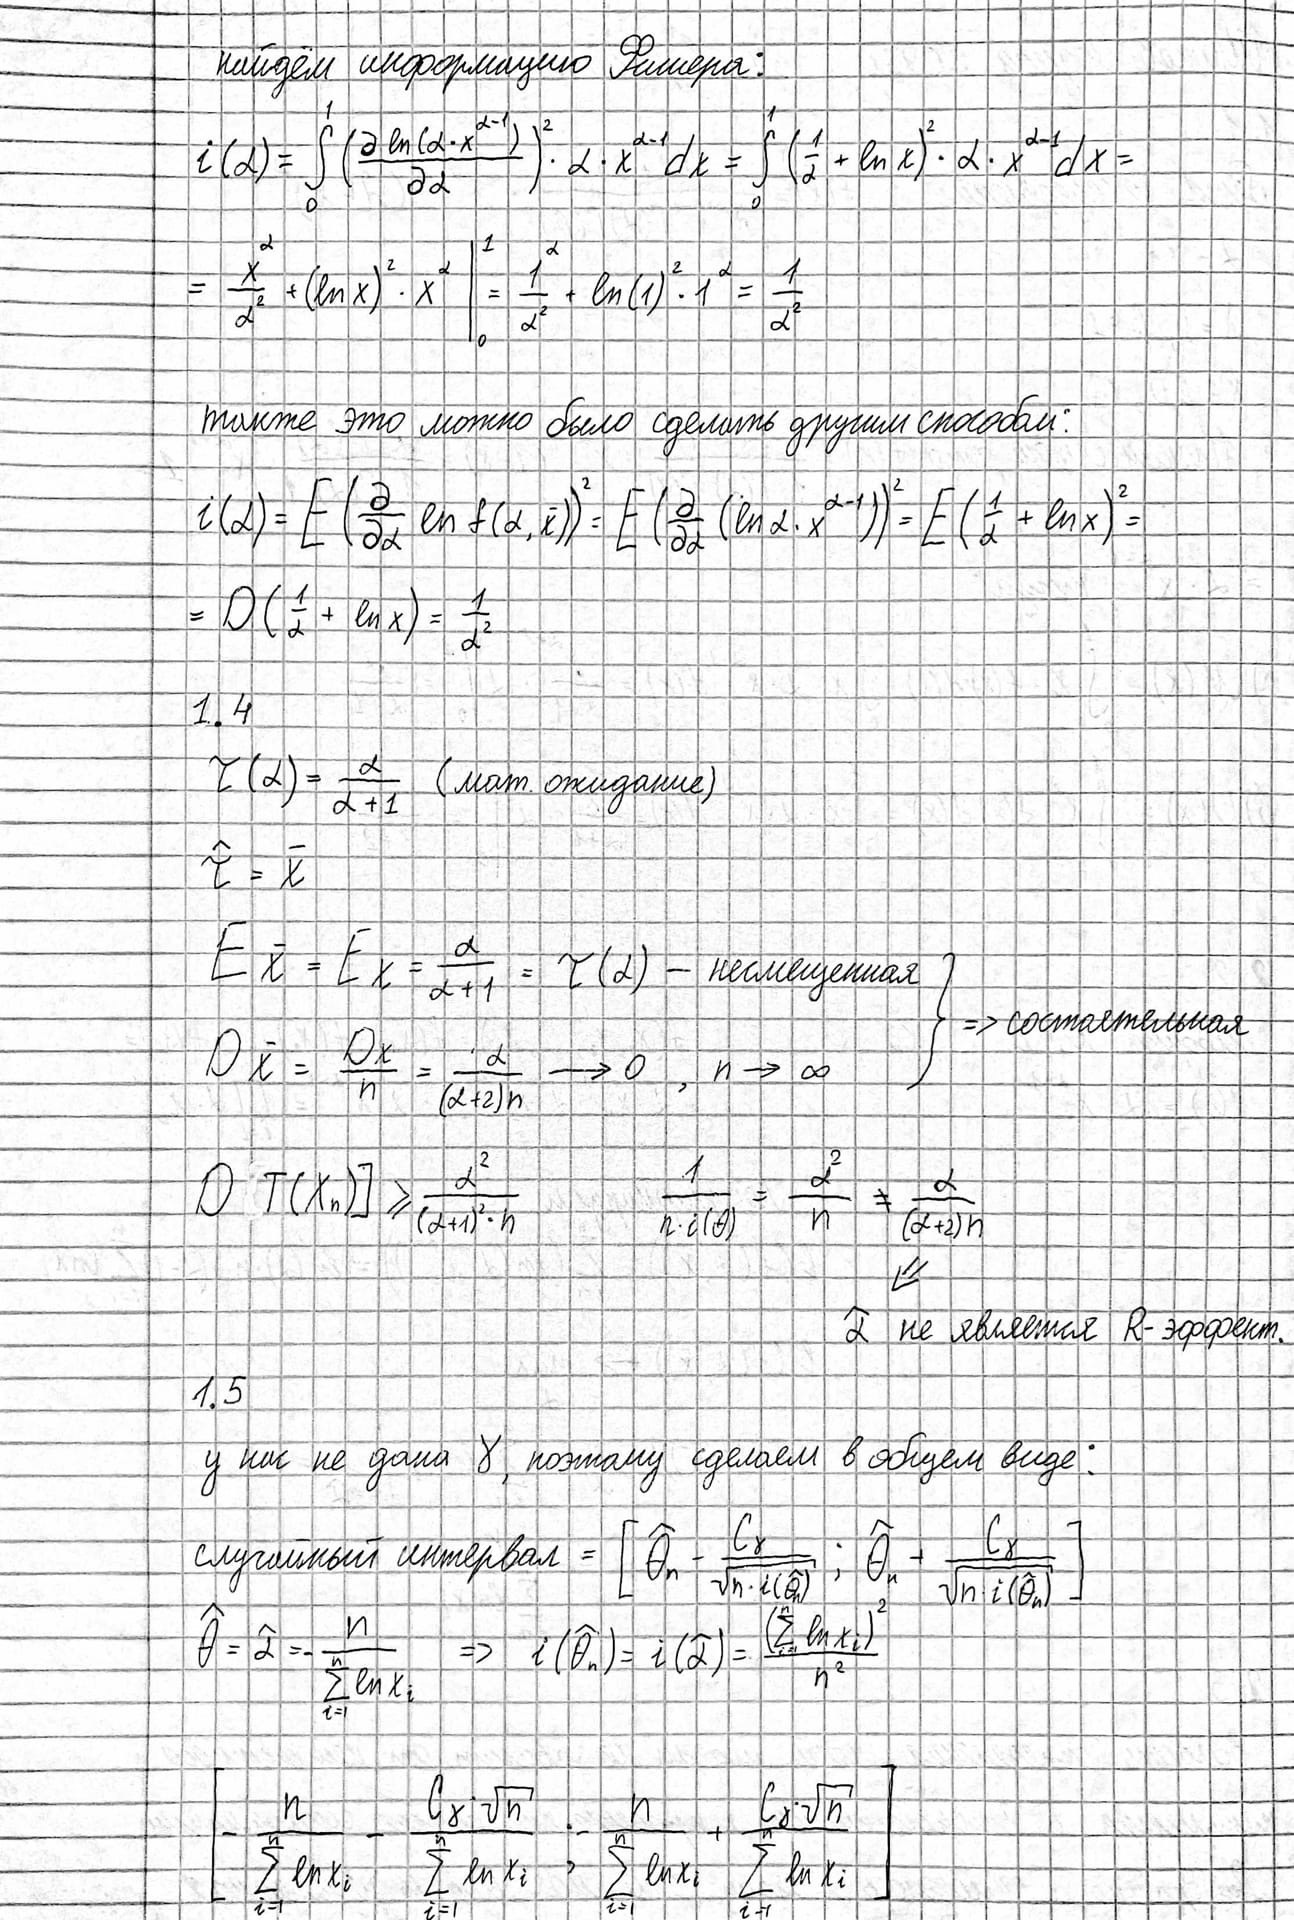 найдём информацию Фишера:
i(α) = ∫₀¹ (∂ ln(α·x^(α-1)) / ∂α)² · α · x^(α-1) dx = ∫₀¹ (1/α + ln x)² · α · x^(α-1) dx =
= x^α/α² + (ln x)² · x^α |₀¹ = 1^α/α² + ln(1)² · 1^α = 1/α²
также это можно было сделать другим способом:
i(α) = E(∂/∂α ln f(α, x̄))² = E(∂/∂α (ln α · x^(α-1)))² = E(1/α + ln x)² =
= D(1/α + ln x) = 1/α²
1.4
τ(α) = α/(α+1) (мат. ожидание)
τ̂ = x̄
E x̄ = E x = α/(α+1) = τ(α) – несмещенная
D x̄ = Dx/n = α/((α+2)n) → 0 , n → ∞ } => состоятельная
D T(Xₙ)] ⩾ α²/((α+1)²·n) 1/(n·i(θ)) = α²/n ≠ α/((α+2)n)
⇙
α̂ не является R-эффект.
1.5
у нас не дана γ, поэтому сделаем в общем виде:
случайный интервал = [θ̂ₙ - Cγ/√(n·i(θ̂ₙ)) ; θ̂ₙ + Cγ/√(n·i(θ̂ₙ))]
θ̂ = α̂ = - n/∑ᵢ₌₁ⁿ ln xᵢ => i(θ̂ₙ) = i(α̂) = (∑ᵢ₌₁ⁿ ln xᵢ)²/n²
[- n/∑ᵢ₌₁ⁿ ln xᵢ - Cγ·√n/∑ᵢ₌₁ⁿ ln xᵢ ; - n/∑ᵢ₌₁ⁿ ln xᵢ + Cγ·√n/∑ᵢ₌₁ⁿ ln xᵢ]